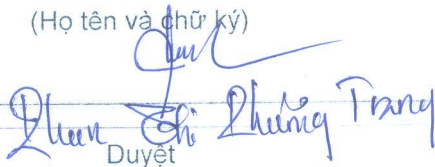 (Họ tên và chữ ký)
Phan Thị Phương Trang
Duyệt